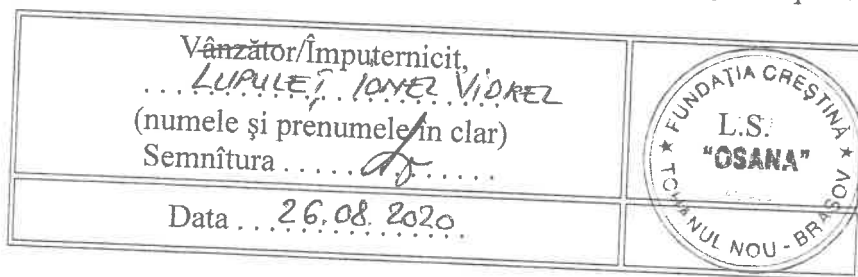 Vânzător/Împuternicit,
LUPULEȚ IONEL VIOREL
(numele şi prenumele în clar)
Semnîtura
Data 26.08.2020
FUNDAŢIA CREŞTINĂ
L.S.
"OSANA"
TOHANUL NOU - BRAŞOV